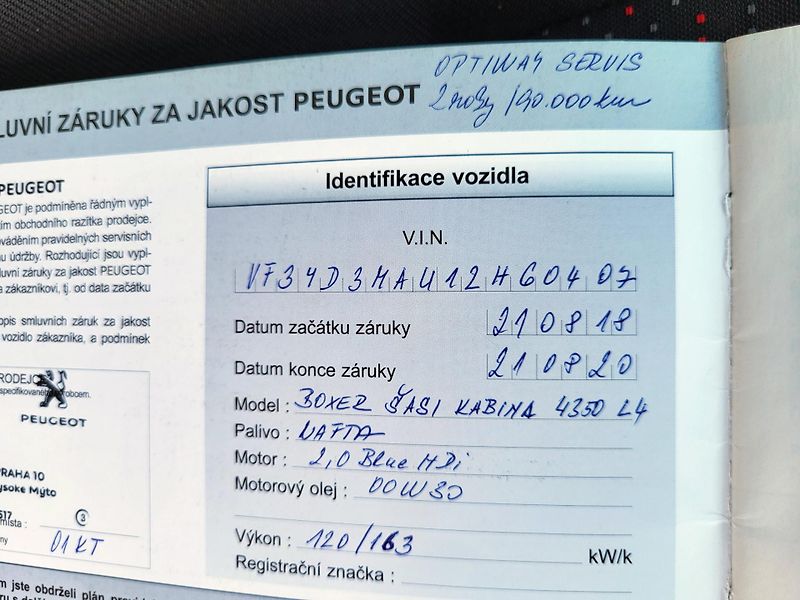 OPTIWAY SERVIS
2 roky /90.000 km
LUVNÍ ZÁRUKY ZA JAKOST PEUGEOT
PEUGEOT
GEOT je podmíněna řádným vypl-
ím obchodního razítka prodejce.
váděním pravidelných servisních
nu údržby. Rozhodující jsou vypl-
luvní záruky za jakost PEUGEOT
a zákazníkovi, tj. od data začátku
opis smluvních záruk za jakost
vozidlo zákazníka, a podmínek
RODEJC
specifikovaného
robcem.
PEUGEOT
PRAHA 10
ysoké Mýto
517
místa :
3
ny
01KT
Identifikace vozidla
V.I.N.
VF34D3MAU12H60407
Datum začátku záruky 210818
Datum konce záruky 210820
Model : BOXER ŠASI KABINA 4350 L4
Palivo : NAFTA
Motor : 2,0 Blue HDi
Motorový olej : 00W30
Výkon : 120/163 kW/k
Registrační značka :
m jste obdrželi plán